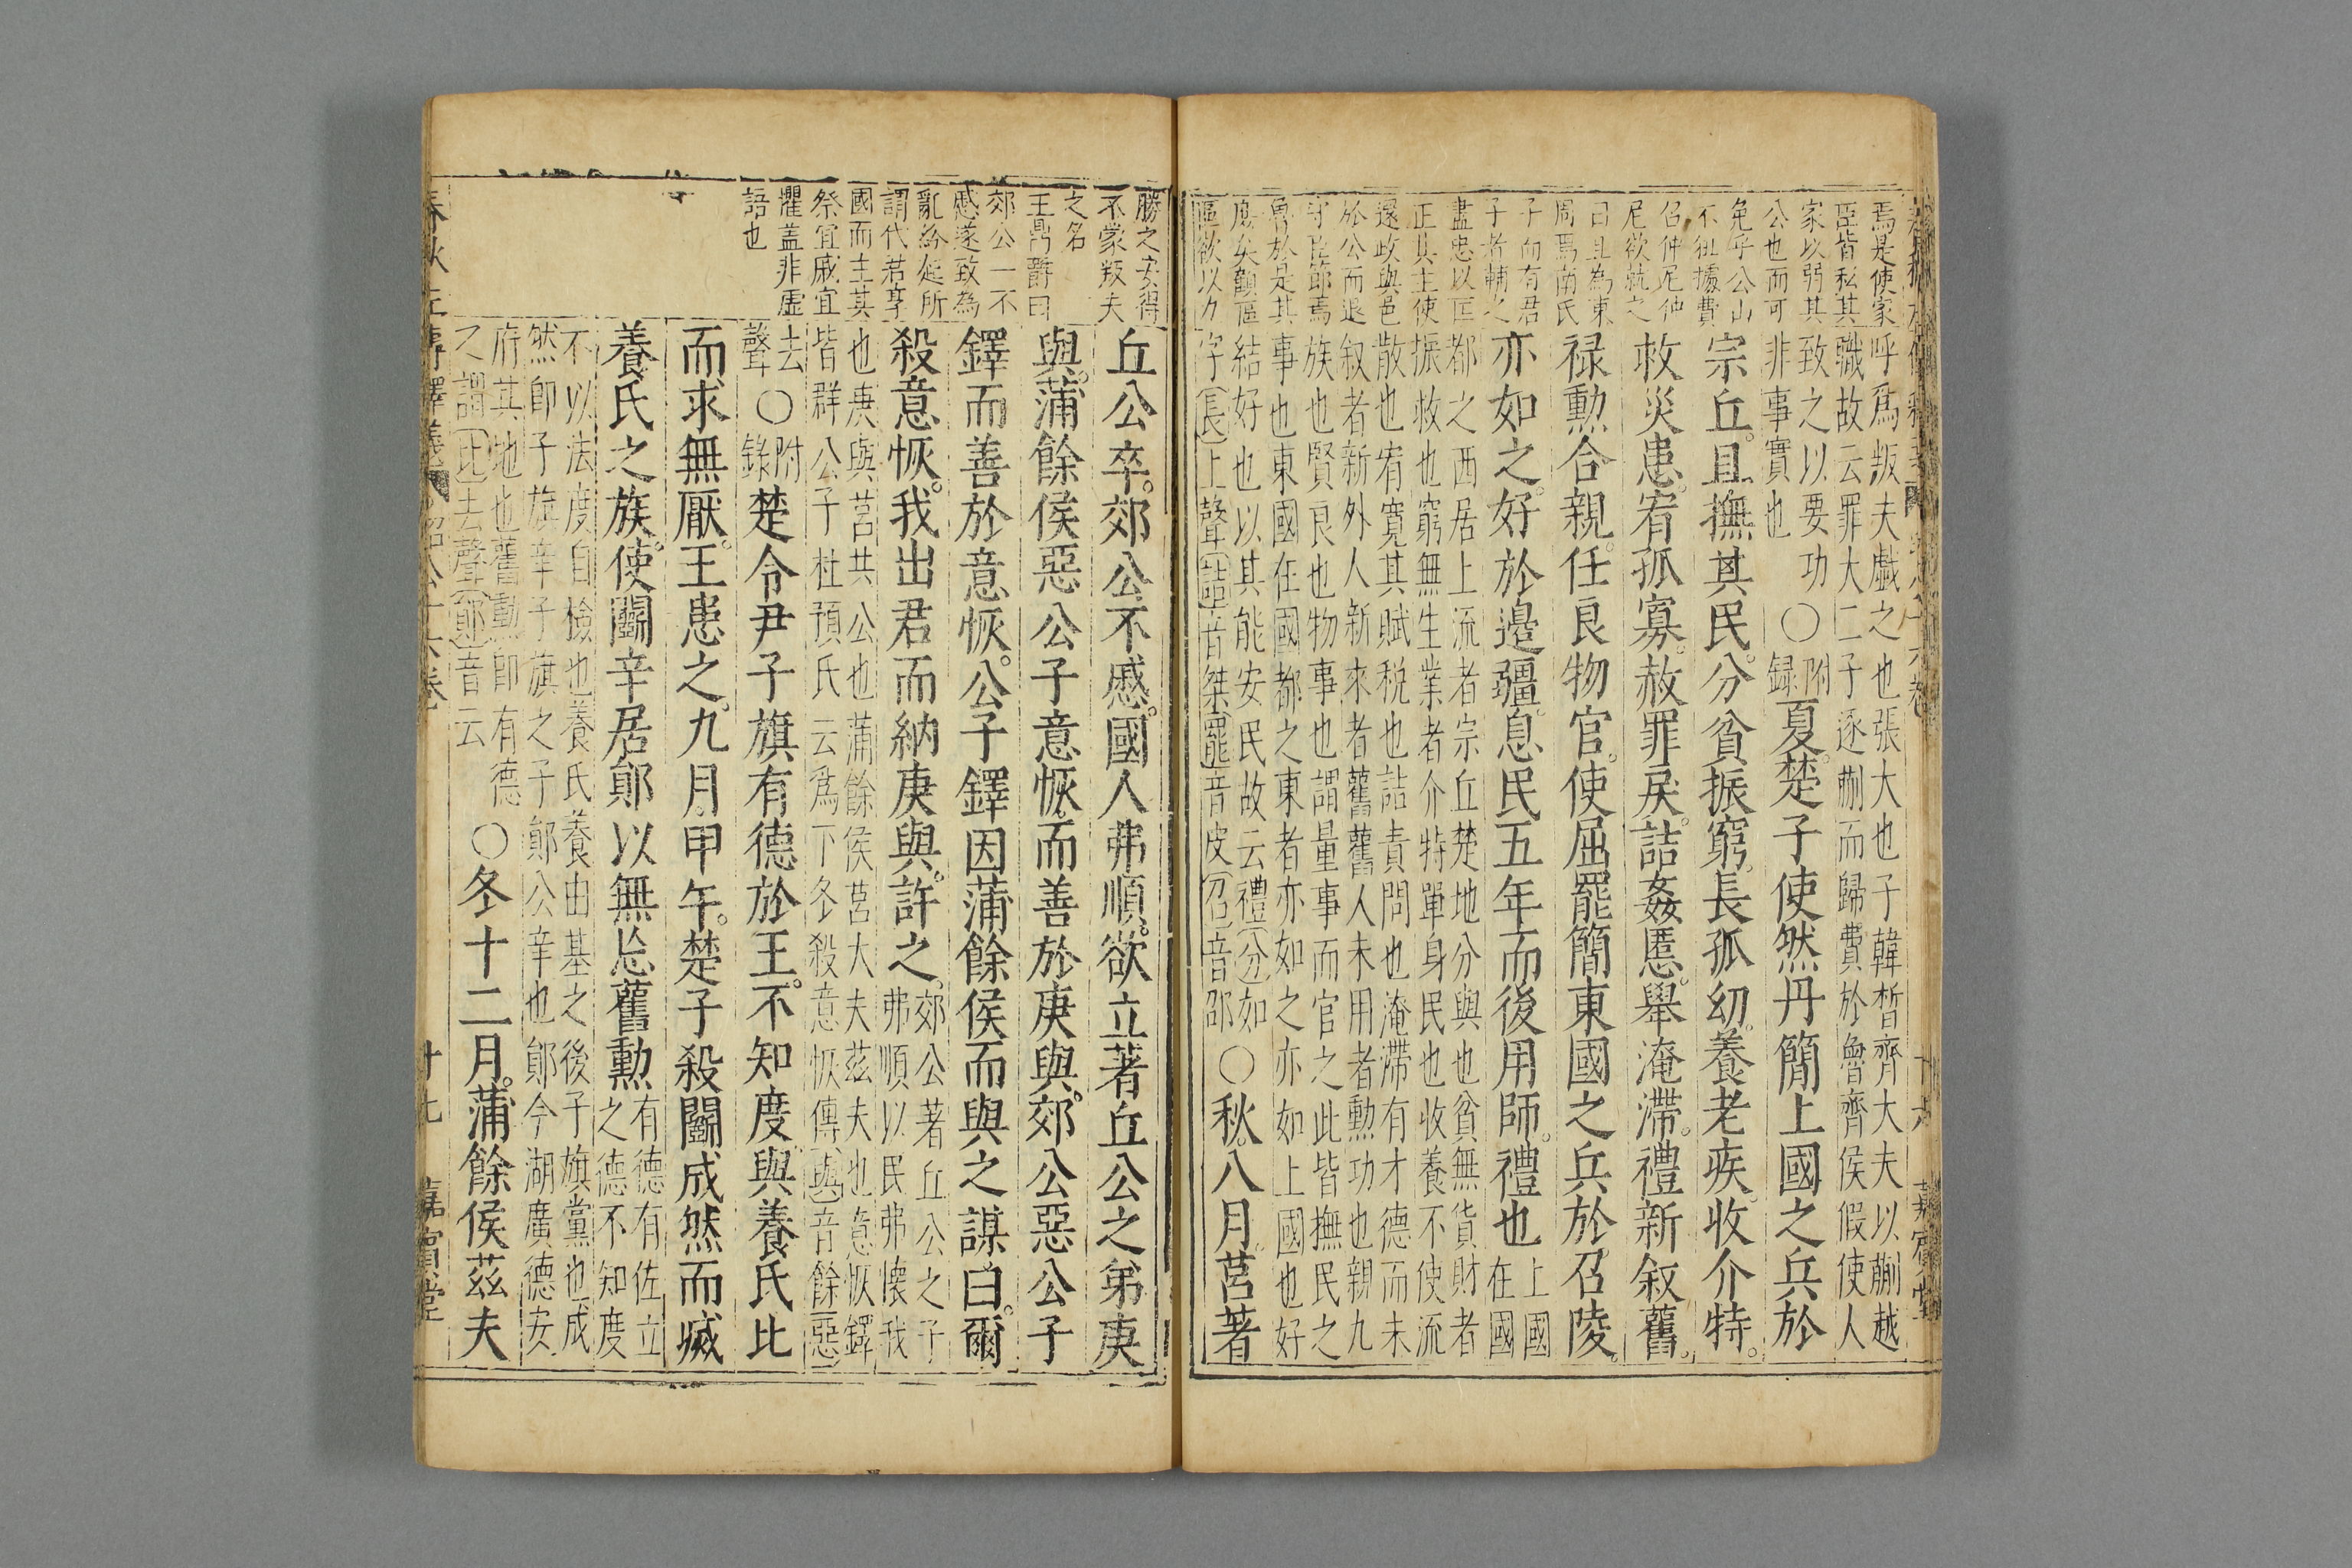 焉是使家
臣皆私其
家以弱其
公也而可
免乎公山
不狃據費
召仲尼仲
尼欲就之
曰其為東
周焉南氏
子而有君
子者輔之
盡忠以匡
正其主使
還政與邑
於公而退
守臣節焉
魯於是其
庶矣顧區
區欲以力
呼爲叛夫戲之也張大也子韓晳齊大夫以蒯越
職故云罪大二子逐蒯而歸費於魯齊侯假使人
致之以要功
非事實也
○附録夏楚子使然丹簡上國之兵於
宗丘且撫其民分貧振窮長孤幼養老疾收介特
救災患宥孤寡赦罪戾詰姦慝舉淹滯禮新叙舊
禄勳合親任良物官使屈罷簡東國之兵於召陵
亦如之好於邊疆息民五年而後用師禮也
上國
在國
都之西居上流者宗丘楚地分與也貧無貨財者
振救也窮無生業者介特單身民也收養不使流
散也宥寬其賦税也詰責問也淹滯有才德而未
叙者新外人新來者舊舊人未用者勳功也親九
族也賢良也物事也謂量事而官之此皆撫民之
事也東國在國都之東者亦如之亦如上國也好
結好也以其能安民故云禮分如
字長上聲詰音桀罷音皮召音邵
○秋八月莒著
勝之安得
不蒙叛夫
之名
王鼎爵曰
郊公一不
慼遂致為
亂終延所
謂代君享
國而主其
祭宜戚宜
懼盖非虛
語也
丘公卒郊公不慼國人弗順欲立著丘公之弟庚
與蒲餘侯惡公子意恢而善於庚與郊公惡公子
鐸而善於意恢公子鐸因蒲餘侯而與之謀曰爾
殺意恢我出君而納庚與許之
郊公著丘公之子
弗順以民弗懷我
也庚與莒共公也蒲餘侯莒大夫茲夫也意恢鐸
皆群公子杜預氏云爲下冬殺意恢傳與音餘惡
去
聲
○附錄楚令尹子旗有德於王不知度與養氏比
而求無厭王患之九月甲午楚子殺鬭成然而滅
養氏之族使鬭辛居鄖以無忘舊勲
有德有佐立
之德不知度
不以法度自檢也養氏養由基之後子旗黨也成
然即子旗辛子旗之子鄖公辛也鄖今湖廣德安
府其地也舊勳即有德
之謂比去聲鄖音云
○冬十二月蒲餘侯茲夫
十七
嘉賓堂